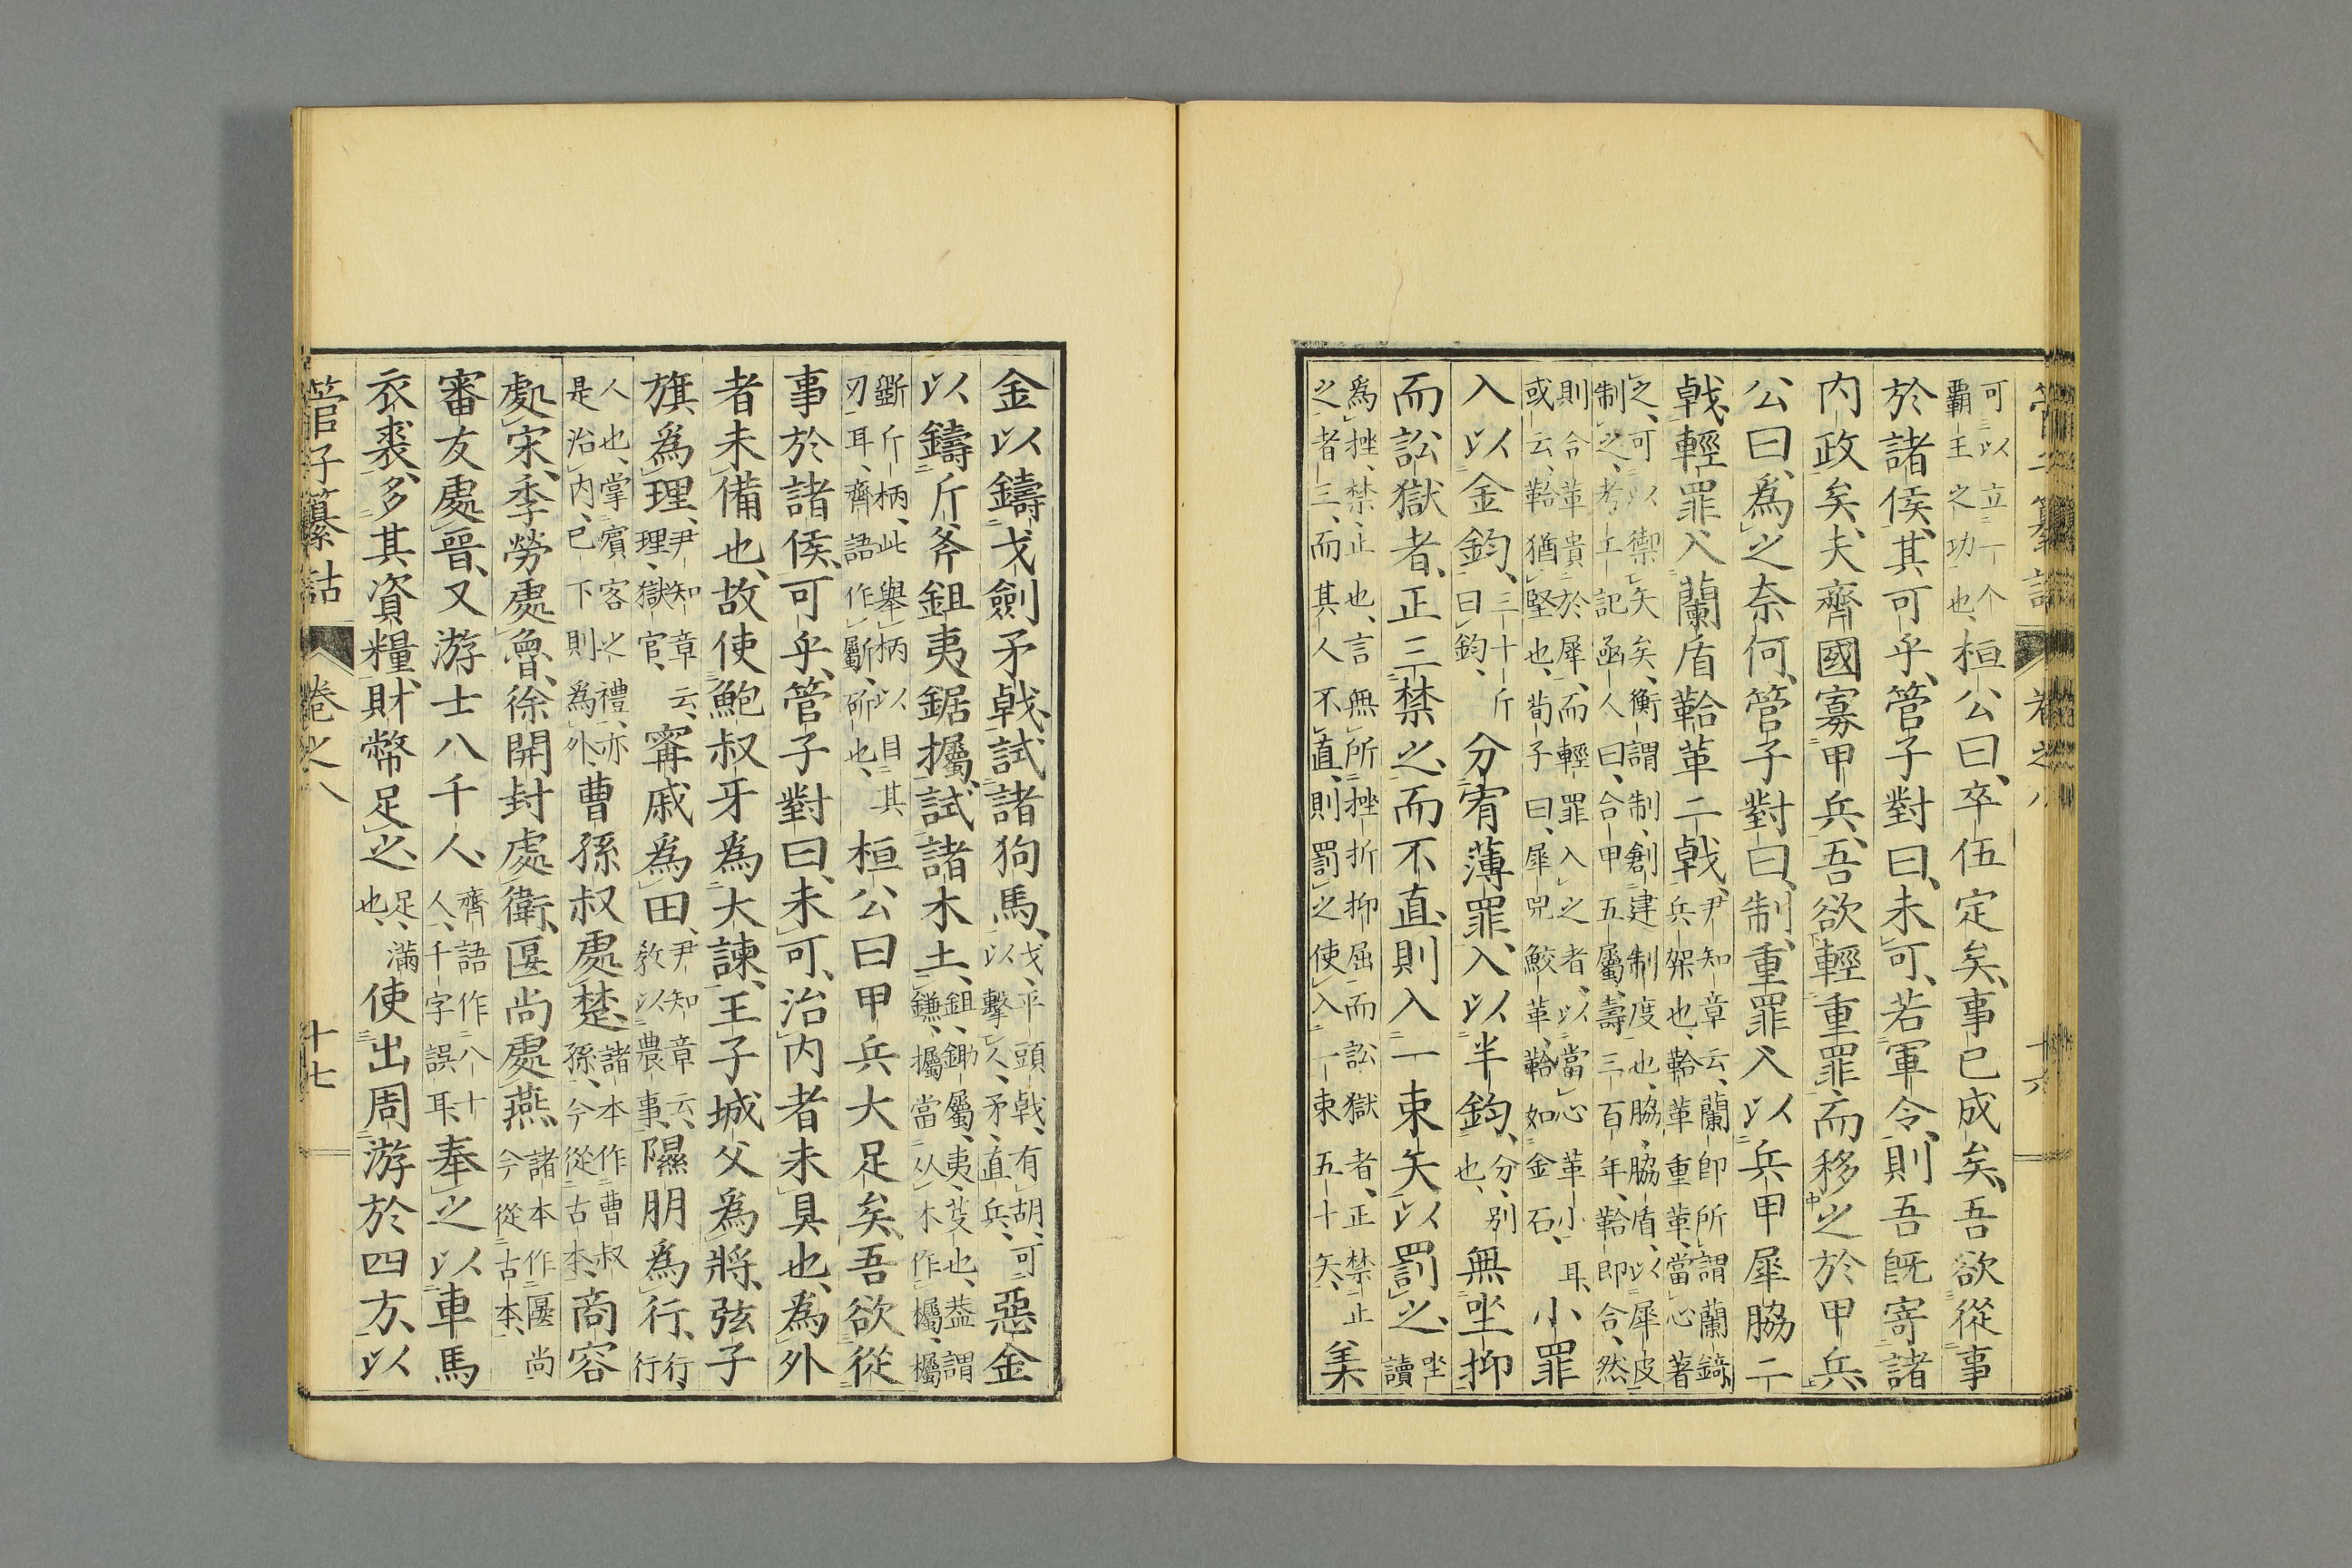 管子纂詁 卷之八 十六
可以立一个霸王之功也、桓公曰、卒伍定矣、事已成矣、吾欲從事
於諸侯、其可乎、管子對曰、未可、若軍令、則吾既寄諸
内政矣、夫齊國寡甲兵、吾欲輕重罪、而移之於甲兵、
公曰、爲之奈何、管子對曰、制、重罪入以兵甲犀脇二
戟、輕罪入蘭盾鞈革二戟、尹知章云、蘭卽所謂蘭錡、兵架也、鞈革重革、當心著
之、可以禦矢矣、衡謂制、創建制度也、脇、脇盾、以犀皮制之、考工記函人曰、合甲五屬、壽三百年、鞈卽合、然
則合革貴於犀、而輕罪入之者、以當心革小耳、或云、鞈猶堅也、荀子曰、犀兕鮫革、鞈如金石、小罪
入以金鈞、三十斤曰鈞、分宥薄罪、入以半鈞、分、別也、無坐抑
而訟獄者、正三禁之、而不直、則入一束矢以罰之、坐讀
爲挫、禁、止也、言無所挫折抑屈而訟獄者、正禁止之者三、而其人不直、則罰之使入一束五十矢、美
金以鑄戈劍矛戟、試諸狗馬、戈、平頭戟、有胡、可以擊人、矛、直兵、惡金
以鑄斤斧鉏夷鋸欘、試諸木土、鉏、鋤屬、夷、芟也、蓋謂鎌、欘當从木作欘、欘
斷斤柄、此舉柄以目其刃耳、齊語作斸、斫也、桓公曰甲兵大足矣、吾欲從
事於諸侯、可乎、管子對曰、未可、治内者未具也、爲外
者未備也、故使鮑叔牙爲大諫、王子城父爲將、弦子
旗爲理、尹知章云、理、獄官、甯戚爲田、尹知章云、教以農事、隰朋爲行、行、行
人也、掌賓客之禮、亦是治内、已下則爲外、曹孫叔處楚、諸本作曹叔孫、今從古本、商容
處宋、季勞處魯、徐開封處衛、匽尚處燕、諸本作匽尚、今從古本、
審友處晉、又游士八千人、齊語作八十人、千字誤耳、奉之以車馬
衣裘、多其資糧、財幣足之、足、滿也、使出周游於四方、以
管子纂詁 卷之八 十七